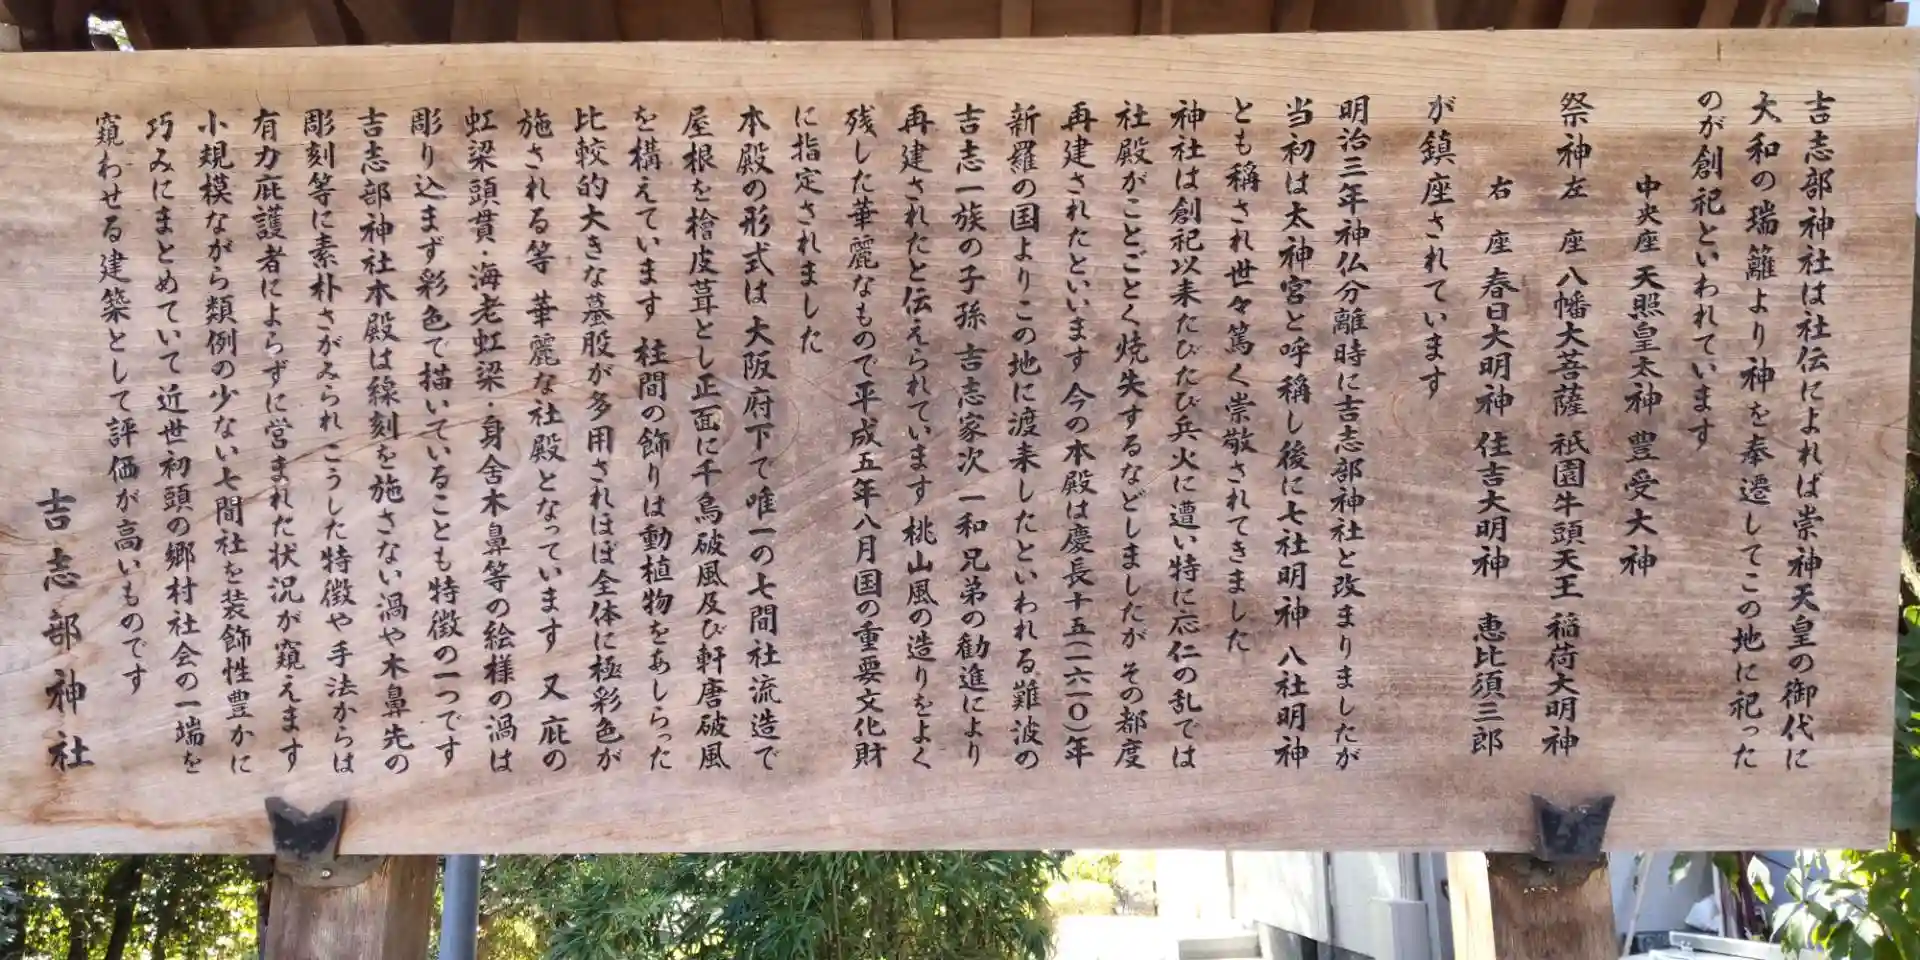 吉志部神社は社伝によれば崇神天皇の御代に
大和の瑞籬より神を奉遷してこの地に祀った
のが創祀といわれています
中央座 天照皇太神 豊受大神
祭神 左 座 八幡大菩薩 祇園牛頭天王 稲荷大明神
右 座 春日大明神 住吉大明神 恵比須三郎
が鎮座されています
明治三年神仏分離時に吉志部神社と改まりましたが
当初は太神宮と呼称し後に七社明神 八社明神
とも稱され世々篤く崇敬されてきました
神社は創祀以来たびたび兵火に遭い特に応仁の乱では
社殿がことごとく焼失するなどしましたが その都度
再建されたといいます 今の本殿は慶長十五(一六一〇)年
新羅の国よりこの地に渡来したといわれる難波の
吉志一族の子孫 吉志家次 一和兄弟の勧進により
再建されたと伝えられています 桃山風の造りをよく
残した華麗なもので平成五年八月国の重要文化財
に指定されました
本殿の形式は 大阪府下で唯一の七間社流造で
屋根を檜皮葺とし正面に千鳥破風及び軒唐破風
を構えています 柱間の飾りは動植物をあしらった
比較的大きな蟇股が多用されほぼ全体に極彩色が
施される等 華麗な社殿となっています 又 庇の
虹梁頭貫・海老虹梁・身舎木鼻等の絵様の渦は
彫り込まず彩色で描いていることも特徴の一つです
吉志部神社本殿は線刻を施さない渦や木鼻先の
彫刻等に素朴さがみられ こうした特徴や手法からは
有力庇護者によらずに営まれた状況が窺えます
小規模ながら類例の少ない七間社を装飾性豊かに
巧みにまとめていて 近世初頭の郷村社会の一端を
窺わせる建築として評価が高いものです
吉志部神社